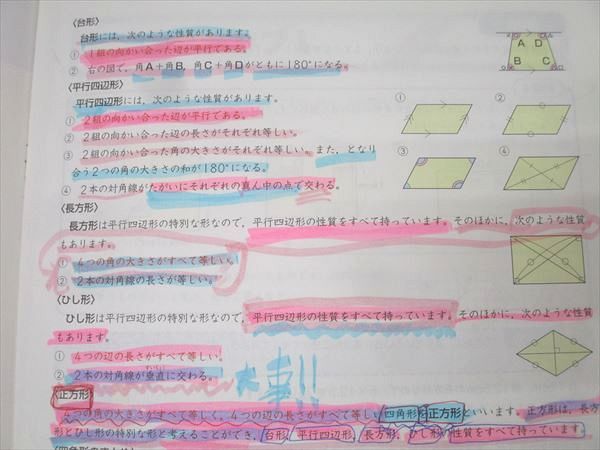 〈台形〉
台形には，次のような性質があります。
① 1組の向かい合った辺が平行である。
② 右の図で，角A＋角B，角C＋角Dがともに180°になる。
A D
B C
〈平行四辺形〉
平行四辺形には，次のような性質があります。
① 2組の向かい合った辺が平行である。
② 2組の向かい合った辺の長さがそれぞれ等しい。
③ 2組の向かい合った角の大きさがそれぞれ等しい。また，となり
合う2つの角の大きさの和が180°になる。
④ 2本の対角線がたがいにそれぞれの真ん中の点で交わる。
① ②
③ ④
〈長方形〉
長方形は平行四辺形の特別な形なので，平行四辺形の性質をすべて持っています。そのほかに，次のような性質
もあります。
① 4つの角の大きさがすべて等しい。
② 2本の対角線の長さが等しい。
〈ひし形〉
ひし形は平行四辺形の特別な形なので，平行四辺形の性質をすべて持っています。そのほかに，次のような性質
もあります。
① 4つの辺の長さがすべて等しい。
② 2本の対角線が垂直に交わる。
大事!!
〈正方形〉
4つの角の大きさがすべて等しく，4つの辺の長さがすべて等しい四角形を正方形といいます。正方形は，長方
形とひし形の特別な形と考えることができ，台形，平行四辺形，長方形，ひし形の性質をすべて持っています。